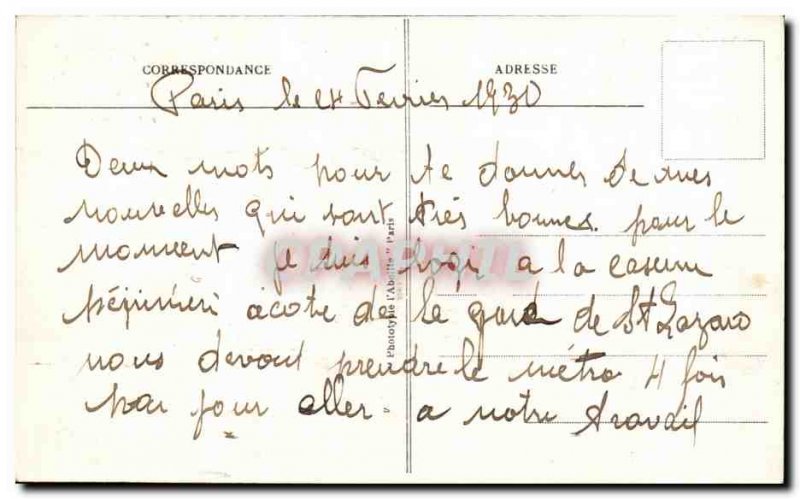 CORRESPONDANCE
ADRESSE
Paris le 24 Fevrier 1930
Deux mots pour te donner de mes
nouvelles qui sont très bonnes pour le
moment je suis logé a la caserne
Pépinieri a cote de la gare de St Lazare
nous devont prendre le métro 4 fois
par jour aller a notre travail
Phototypie l'Abeille" Paris